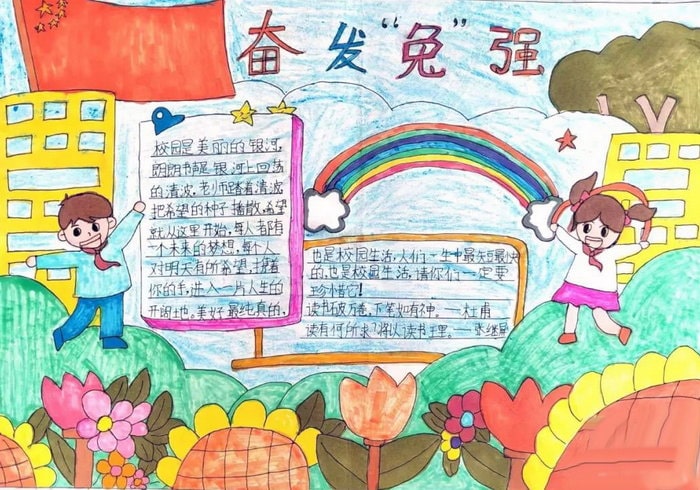 奋发“兔”强
校园是美丽的银河,
朗朗书声是银河上回荡
的清波。老师踏着清波
把希望的种子播散。希望
就从这里开始,每人都有
一个未来的梦想,每个人
对明天有所希望。捉着
你的手,进入一片人生的
开阔地。美好最纯真的,
也是校园生活,人们一生中最先最快
的,也是校园生活,请你们一定要
珍惜它!
读书破万卷,下笔如有神。——杜甫
读有何所求?将以读书王里。——张继